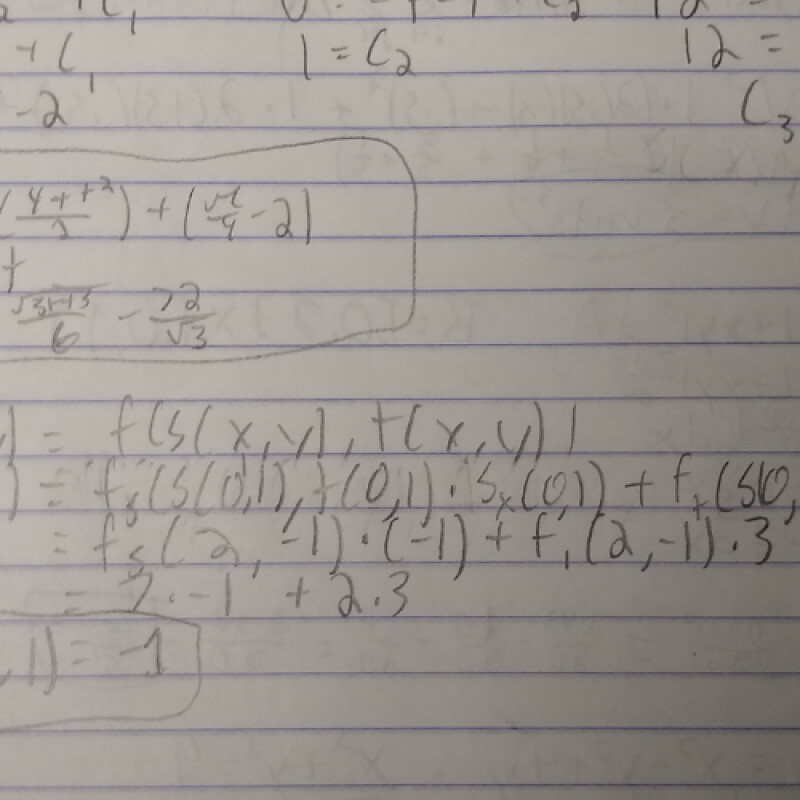 + C₁ 1 = C₂ 12 =
-2 C₃
(4++²/2) + (√t/4 - 2)
t
6 - 72/√3
) = f(s(x,y), t(x,y))
) = fₛ(s(0,1), t(0,1)) · sₓ(0,1) + fₜ(s(0,
= fₛ(2, -1) · (-1) + fₜ(2, -1) · 3
= 7 · -1 + 2 · 3
,1) = -1